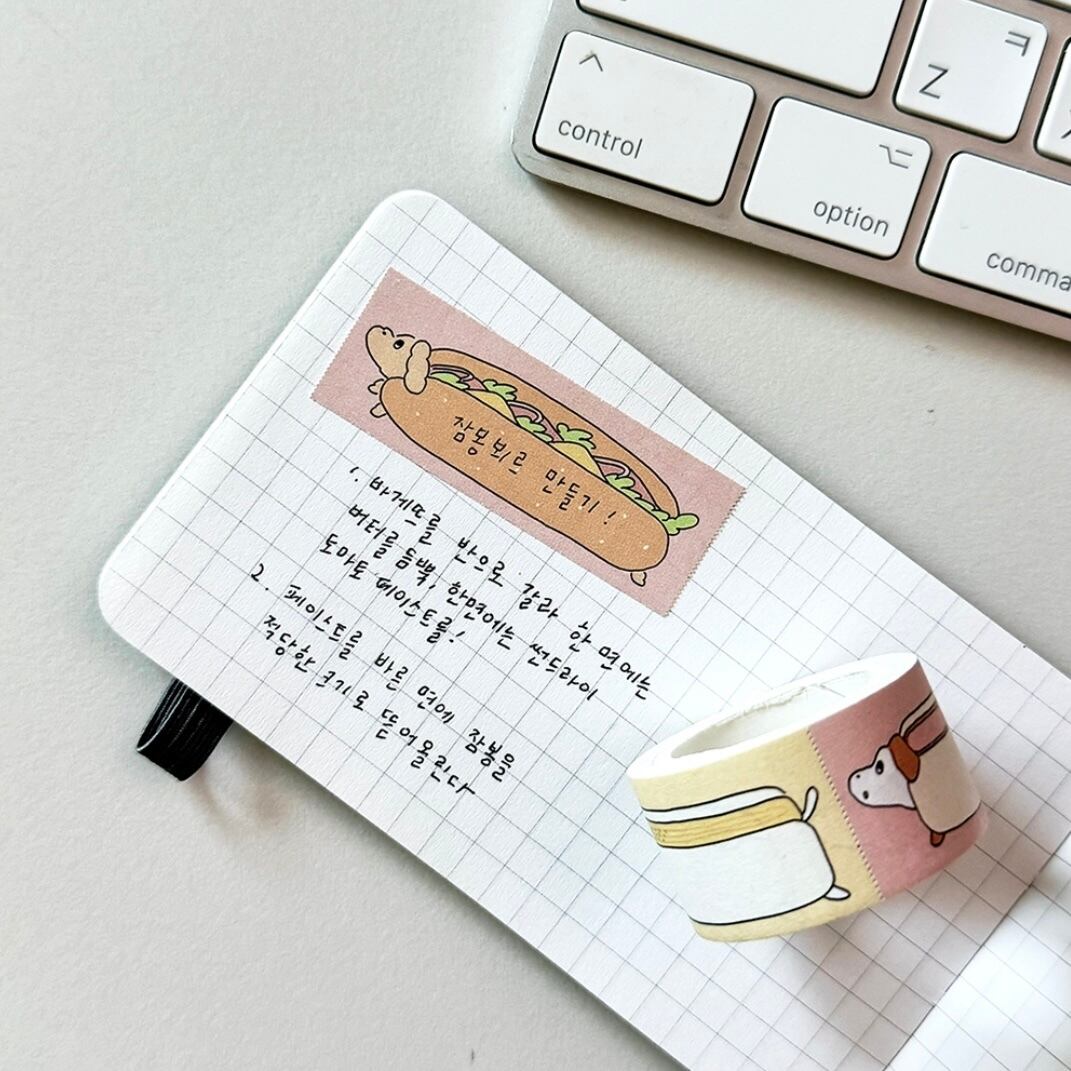 control
option
Z
ㅋ
comma
잠봉뵈르 만들기!
1. 바게뜨를 반으로 갈라 한 면에는
버터를 듬뿍, 한면에는 썬드라이
토마토 페이스트를!
2. 페이스트를 바른 면에 잠봉을
적당한 크기로 뜯어올린다